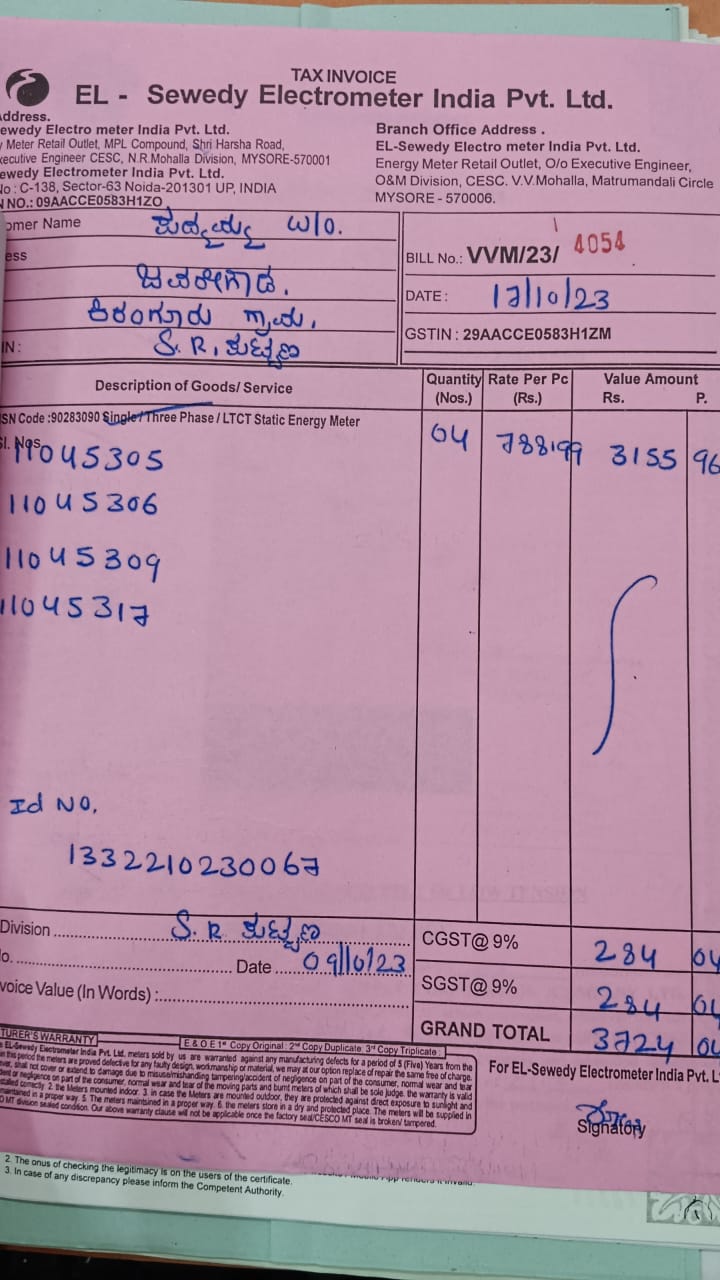 TAX INVOICE
EL - Sewedy Electrometer India Pvt. Ltd.
ddress.
ewedy Electro meter India Pvt. Ltd.
Meter Retail Outlet, MPL Compound, Shri Harsha Road,
xecutive Engineer CESC, N.R.Mohalla Division, MYSORE-570001
ewedy Electrometer India Pvt. Ltd.
No : C-138, Sector-63 Noida-201301 UP, INDIA
N NO.: 09AACCE0583H1ZO
Branch Office Address .
EL-Sewedy Electro meter India Pvt. Ltd.
Energy Meter Retail Outlet, O/o Executive Engineer,
O&M Division, CESC. V.V.Mohalla, Matrumandali Circle
MYSORE - 570006.
omer Name W/o.
ess
ಕಿರಂಗೂರು ಗ್ರಾಮ.
IN : S. R.
BILL No.: VVM/23/ 4054
DATE : 17/10/23
GSTIN : 29AACCE0583H1ZM
Description of Goods/ Service Quantity (Nos.) Rate Per Pc (Rs.) Value Amount Rs. P.
SN Code :90283090 Single / Three Phase / LTCT Static Energy Meter
Sl. Nos 11045305 04 788.99 3155 96
11045306
11045309
11045317
Id No.
1332210230067
Division S. R
o. Date 09/10/23
voice Value (In Words) :
CGST@ 9% 284 04
SGST@ 9% 284 04
GRAND TOTAL 3724 04
E & O E 1st Copy Original : 2nd Copy Duplicate 3rd Copy Triplicate
TURER'S WARRANTY
EL-Sewedy Electrometer India Pvt. Ltd. meters sold by us are warranted against any manufacturing defects for a period of 5 (Five) Years from the
n this period the meters are proved defective for any faulty design, workmanship or material, we may at our option replace of repair the same free of charge.
ver, shall not cover or extend to damage due to misuse/mishanding tampering/accident of negligence on part of the consumer, normal wear and tear
stalled correctly. 2. the Meters mounted indoor. 3. in case the Meters are mounted outdoor, they are protected against direct exposure to sunlight and
maintained in a proper way. 5. The meters maintained in a proper way. 6. the meters store in a dry and protected place. The meters will be supplied in
O MT division sealed condition. Our above warranty clause will not be applicable once the factory seal/CESCO MT seal is broken/ tampered.
For EL-Sewedy Electrometer India Pvt. L
Signatory
2. The onus of checking the legitimacy is on the users of the certificate.
3. In case of any discrepancy please inform the Competent Authority.